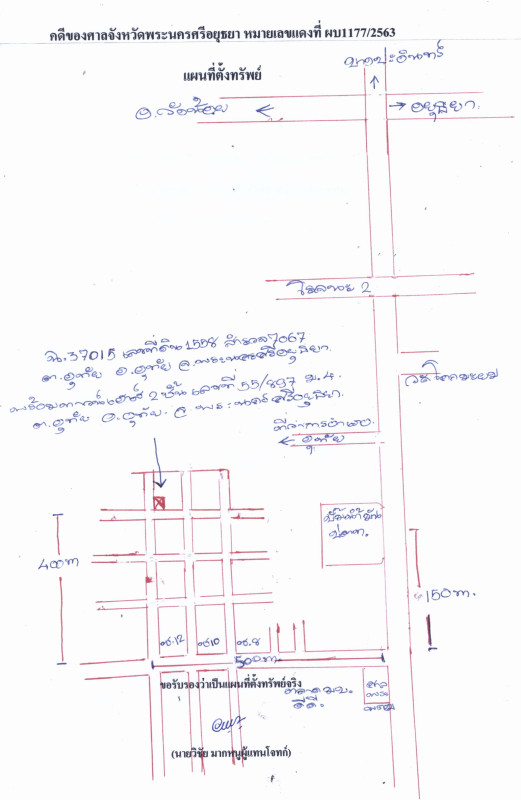 คดีของศาลจังหวัดพระนครศรีอยุธยา หมายเลขแดงที่ ผบ1177/2563
บางปะอินทร์
แผนที่ตั้งทรัพย์
อ.วังน้อย
อยุธยา.
โรจนะ 2
น.37015 เลขที่ดิน 1558 สำรวจ 7067
ต.อุทัย อ.อุทัย จ.พระนครศรีอยุธยา.
พร้อมทาวน์เฮาส์ 2 ชั้น เลขที่ 55/897 ม.4.
ต.อุทัย อ.อุทัย. จ.พระนครศรีอยุธยา.
วัดโคกมะยม
ที่ว่าการอำเภอ.
อุทัย
ปั๊มน้ำมัน
ปตท.
400m
150m.
ซ.12
ซ.10
ซ.8
500m
ขอรับรองว่าเป็นแผนที่ตั้งทรัพย์จริง
ตลาด
ศาล
พระ
พรหม
(นายวิชัย มากหนูผู้แทนโจทก์)